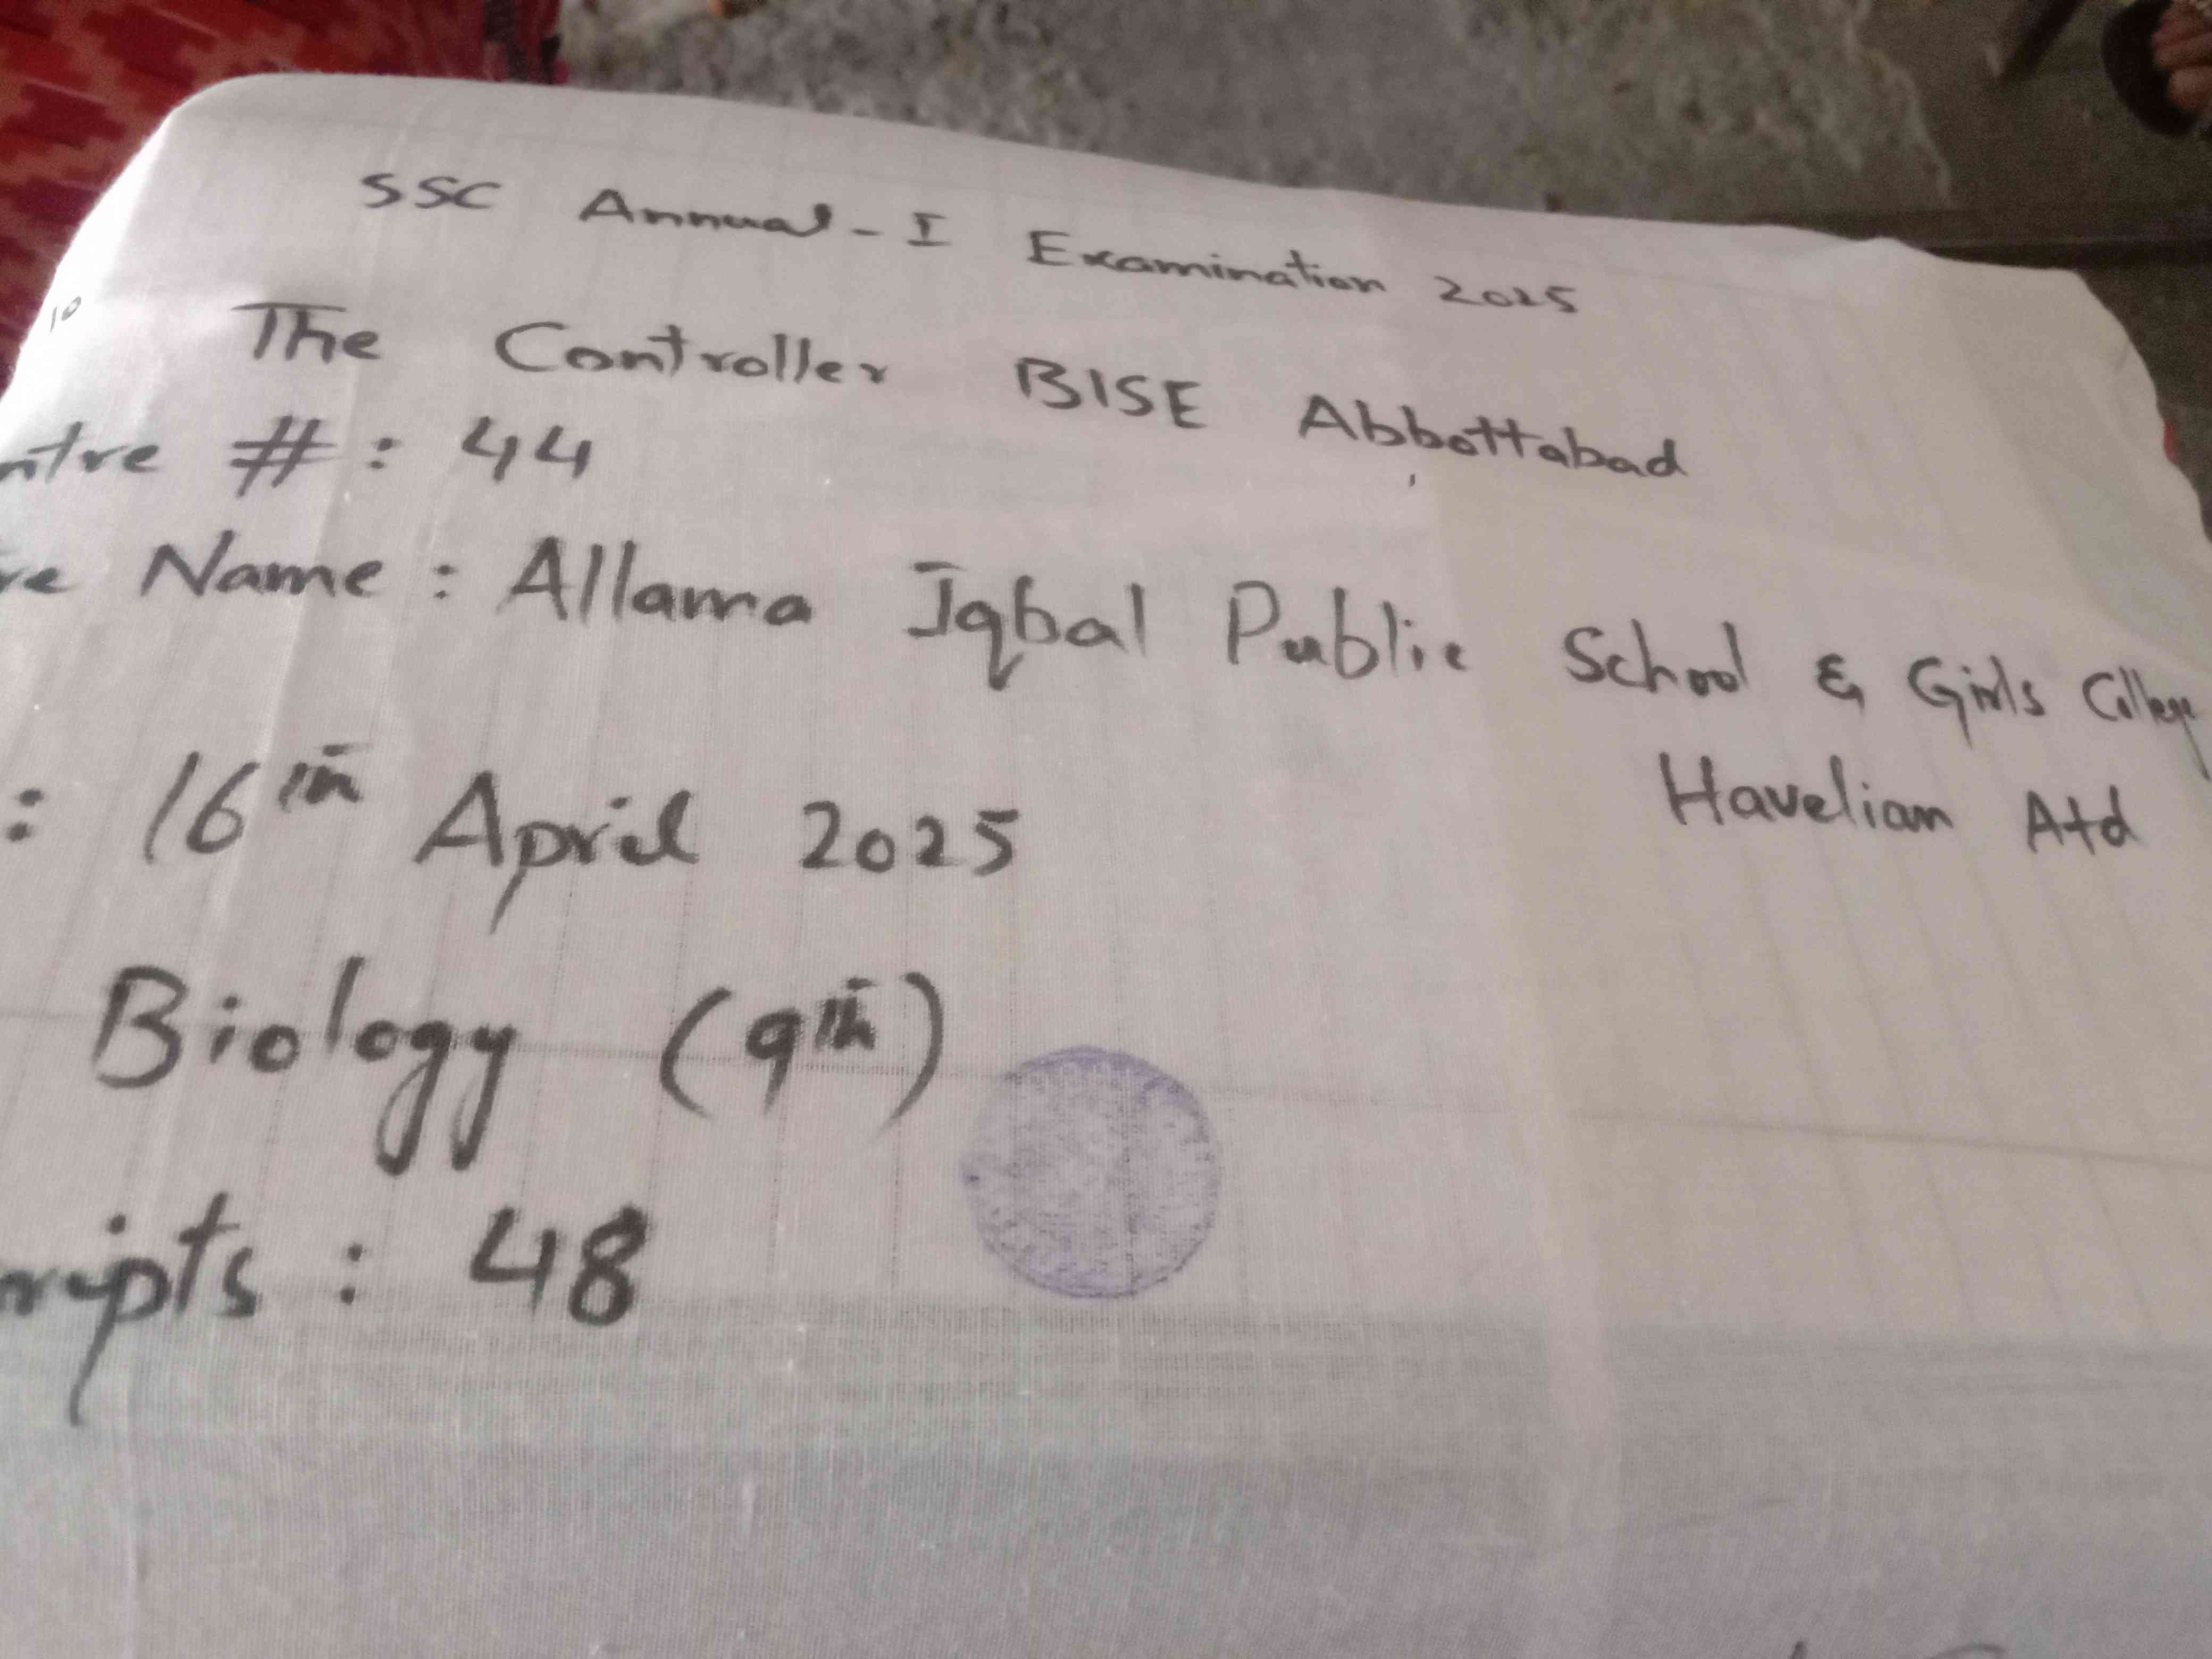 SSC Annual - I Examination 2025
10
The Controller BISE Abbottabad
ntre #: 44
re Name : Allama Iqbal Public School & Girls College
Havelian Atd
: 16th April 2025
Biology (9th)
ripts : 48